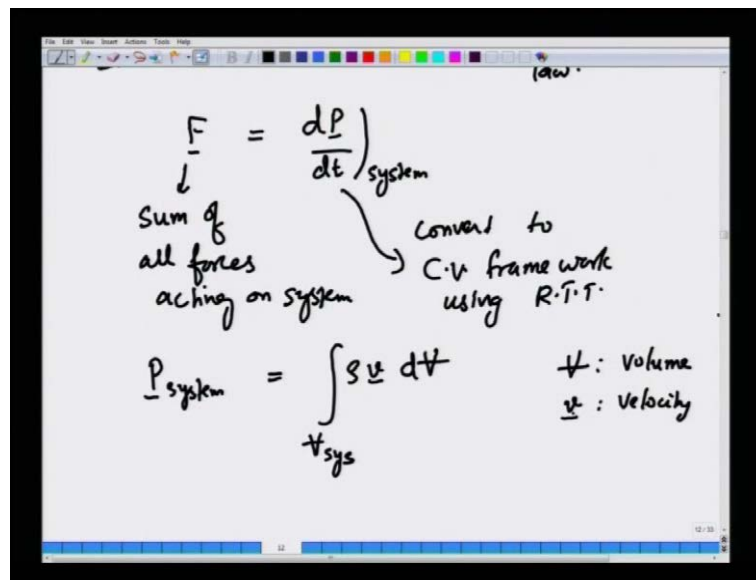 File Edit View Insert Actions Tools Help
law.
F = dP/dt)system
sum of
all forces
acting on system
convert to
C.V framework
using R.T.T.
P system = ∫ ρ v dV
V sys
V : volume
v : velocity
12/33
12